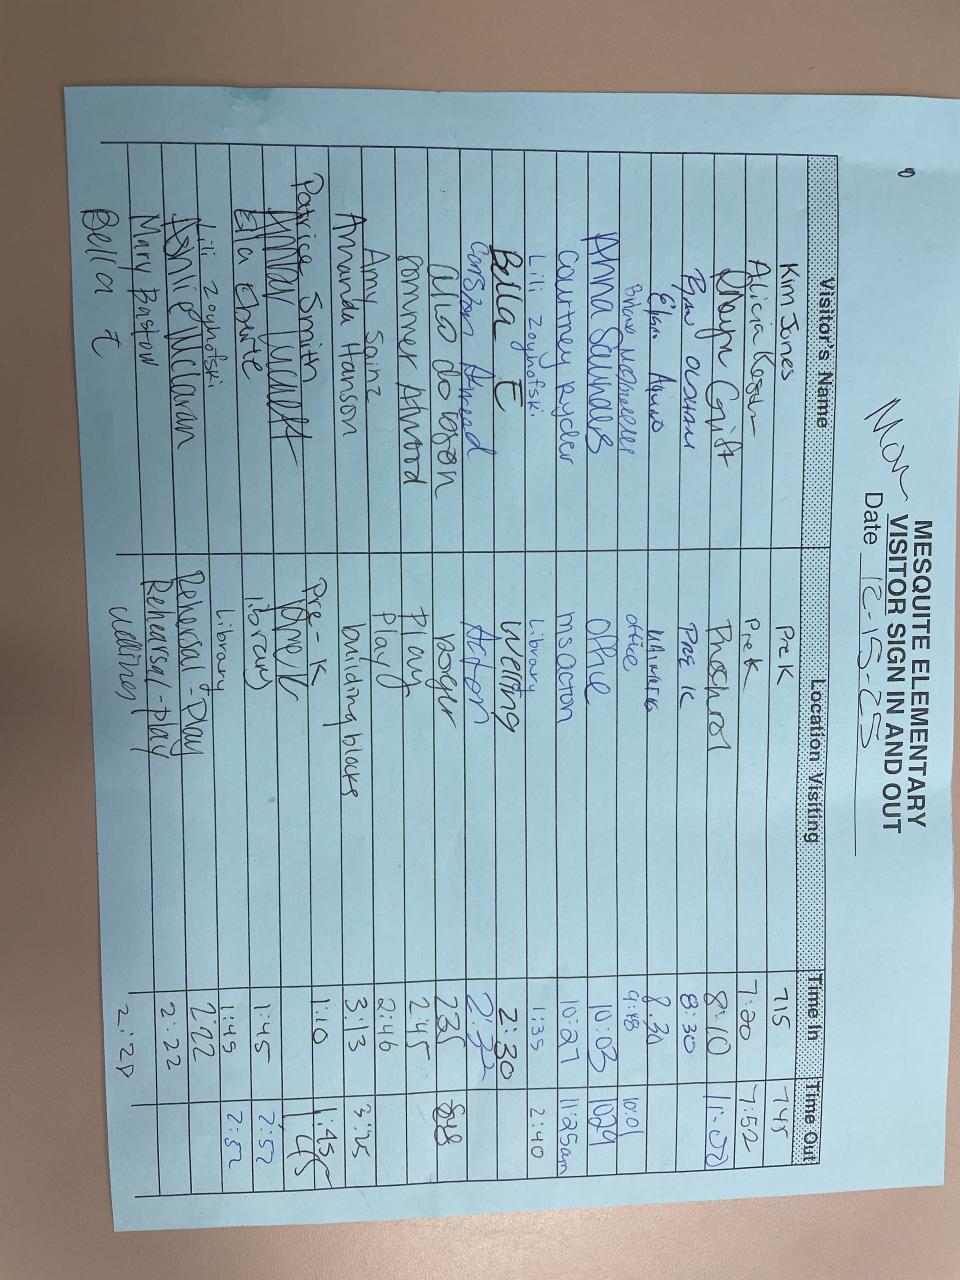 MESQUITE ELEMENTARY
VISITOR SIGN IN AND OUT
Mon Date 12-15-25
Visitor's Name Location Visiting Time In Time Out
Kim Jones Pre K 715 745
Alicia Pre K 7:20 7:52
8:10 11:02
Ryan PRE K 8:30
8.30
Office 9:48 10:01
Anna Saunders Office 10:03 1029
Courtney Ryder ms acton 10:27 11:25am
Lili Zoynofski Library 1:35 2:40
Bella E welling 2:30
Carson Ahmed Acton 2:32
dobson 235
Sommer Atwood Play 2:45
Amy Sainz Play 2:46
Amanda Hanson building blocks 3:13 3:25
Patrica Smith Pre-K 1:10 1:45
Ella library 1:45 2:52
Lili Zoynofski Library 1:45 2:52
Rehersal-Play 2:22
Mary Bastow Rehearsal-play 2:22
Bella E 2:20